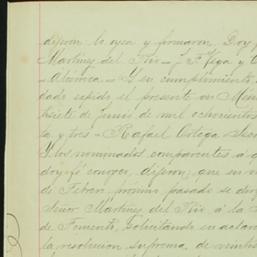 dijeron la oyen y firmaron. Doy
Martinez del Rio - J. F. Vega y
Y en cumplimiento
dado espido el presente en
de Junio de mil ochocientos
ta y tres - Rafael Ortega
Y los nominados comparentes á q
doy fé conozco, dijeron: que en
de Febrero proximo pasado se
Señor Martinez del Rio á la S
de Fomento, solicitando se aclar
la resolucion suprema, de veinti